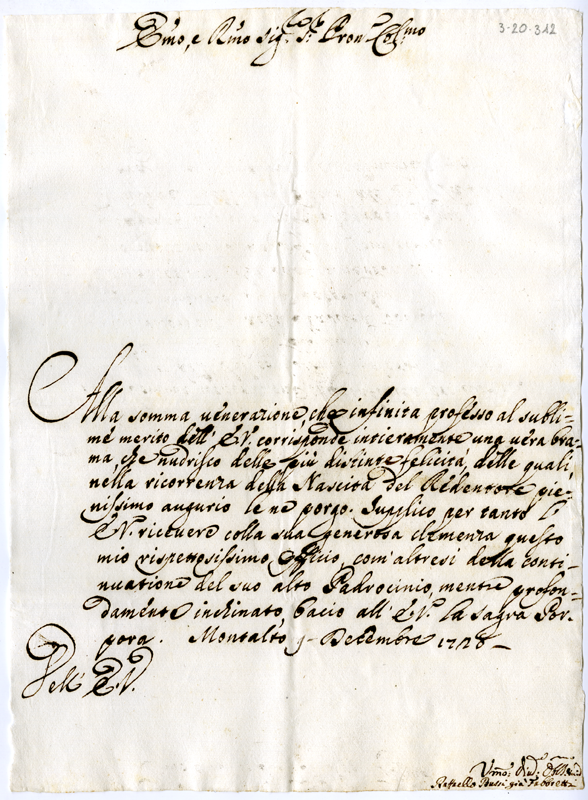 3-20-312
Emo, e Rmo Sig.r S.r Pron Col:mo
Alla somma venerazione che infinita professo al subli=
me merito dell' E.V. corrisponde intieramente una vera bra=
ma, che nudrisco delle più distinte felicità, delle quali,
nella ricorrenza della Nascita del Redentore pie=
nissimo augurio le ne porgo. Suplico per tanto l'
E.V. ricevere colla sua generosa clemenza questo
mio rispettosissimo officio, com' altresì della conti=
nuatione del suo alto Padrocinio, mentre profon=
damente inchinato, bacio all' E.V. la sagra Por=
pora. Montalto 9 Decembre 1728
Dell' E.V.
Vmo:
Raffaello